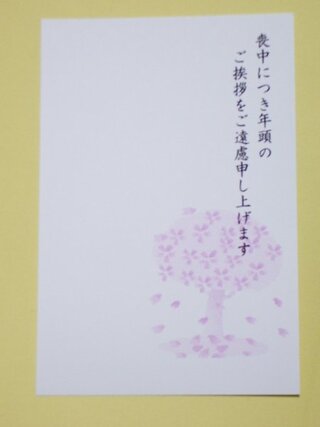 喪中につき年頭の
ご挨拶をご遠慮申し上げます